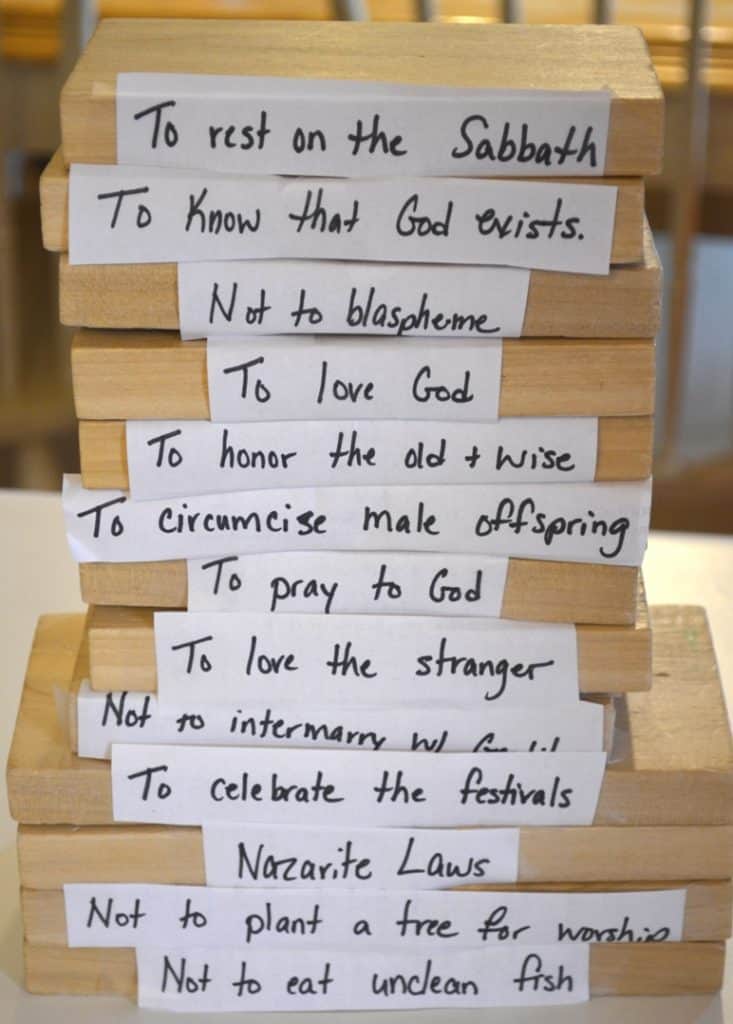 To rest on the Sabbath
To Know that God exists.
Not to blaspheme
To love God
To honor the old + wise
To circumcise male offspring
To pray to God
To love the stranger
Not to intermarry w/
To celebrate the festivals
Nazarite Laws
Not to plant a tree for worship
Not to eat unclean fish